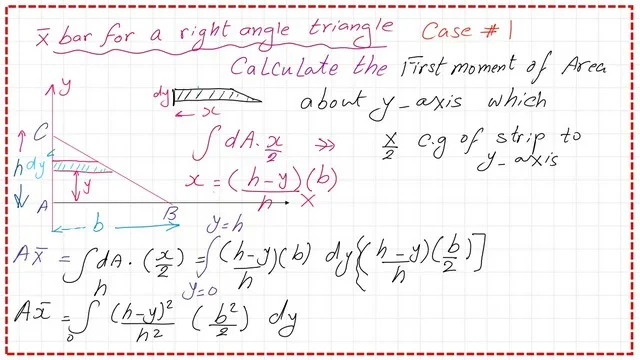 x̄ bar for a right angle triangle Case #1
Calculate the First moment of Area
about y-axis which
∫ dA · x/2 ⇒ x/2 c.g of strip to y-axis
x = (h-y)(b)/h
dy
x
y
C
h
dy
y
A
B
X
b
Ax̄ = ∫ dA · (x/2) = ∫_{y=0}^{y=h} (h-y)/h (b) dy {(h-y)/h (b/2)]
Ax̄ = ∫_0^h (h-y)²/h² (b²/2) dy